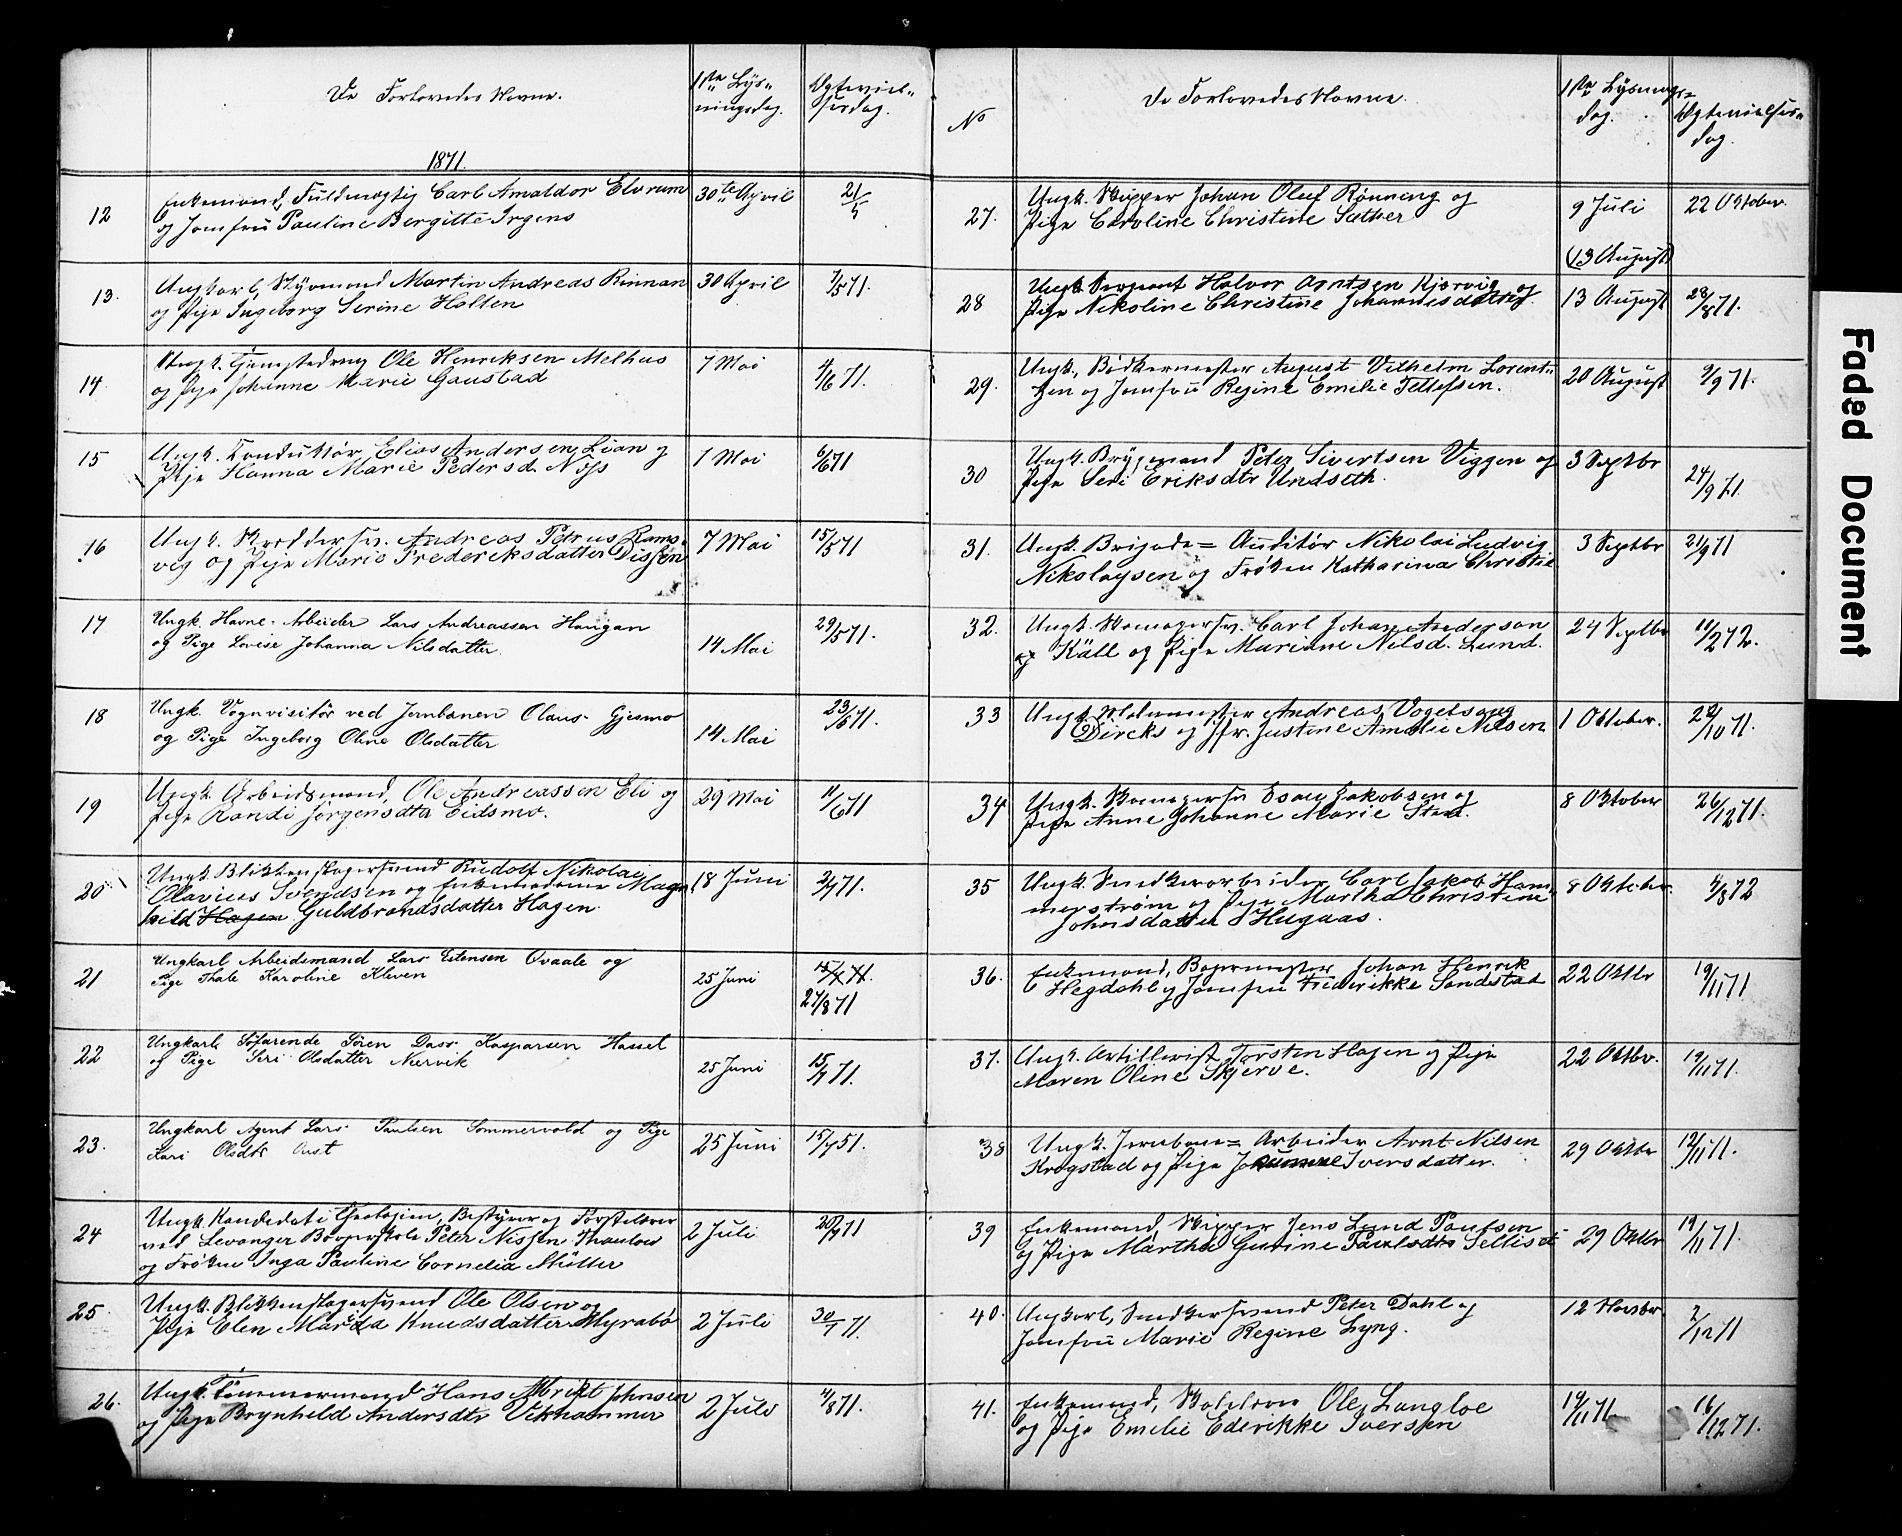 De Forlovedes Navne.
1ste Lys-
ningsdag.
Ægteviel-
sesdag.
1871.
12 Enkemand, Fuldmægtig Carl Amaldor Elvrum 30te April 21/5
og Jomfru Pauline Bergitte Irgens
13. Ungkarl, Styrmand Martin Andreas Rinnan 30 April 7/5 71.
og Pige Ingeborg Serine Holten
14. Ungk. Ole Henriksen Melhus 7 Mai 4/6 71.
og Pige Johanne Marie Gaustad
15 Ungk. Konduktør Elias Andersen Lian og 7 Mai 6/6 71
Pige Hanna Marie Pedersd.
16 Ungk. Skræddersv. Andreas Petrus Rams- 7 Mai 15/5 71
vig og Pige Marie Frederiksdatter Dissen
17 Ungk. Havne-Arbeider Lars Andreassen Haugan
og Pige Lovise Johanna Nilsdatter 14 Mai 29/5 71.
18 Ungk. Vognvisitør ved Jernbanen Olaus Gjesmo 23/6 71.
og Pige Ingeborg Oline Olsdatter 14 Mai
19 Ungk. Arbeidsmand, Ole Andreassen Eli og 29 Mai 11/6 71
Pige Randi Jørgensdtr Eidsmo.
20 Ungk. Blikkenslagersvend Rudolf Nikolai 18 Juni 2/7 71.
Olavius Svendsen og Enkemadame Magn
hild Hagen Guldbrandsdatter Hagen.
21 Ungkarl Arbeidsmand Lars Estensen Ovaale og 15/7 71.
Pige Thale Karoline Kleven 25 Juni 27/8 71
22 Ungkarl Søfarende Sören Dass Kasparsen Hassel
og Pige Seri Olsdatter Nervik 25 Juni 15/7 71.
23. Ungkarl Agent Lars Paulsen Sommervold og Pige 25 Juni 15/7 51.
Kari Olsdtr Aust
24 Ungk. Kandidat i Theologien, Bestyrer og Forstelærer 2 Juli 20/7 71
ved Levanger Borgerskole Peter Nissen
og Frøken Inga Pauline Cornelia Müller
25. Ungk. Blikkenslagersvend Ole Olsen og 2 Juli 30/7 71.
Pige Elen Knudsdatter Myrabö
26. Ungk. Tømmermand Hans Johnsen 2 Juli 4/8 71.
og Pige Brynhild Andersdtr Vekhammer
No
De Forlovedes Navne.
1ste Lysnings-
dag.
Ægtevielses-
dag.
27. Ungk. Skipper Johan Oluf Rønning og 9 Juli 22 Oktober.
Pige Caroline Christine Sæther
(13 August)
28 Ungk. Sergeant Halvor Arntsen Kjørvig og 13 August 28/8 71.
Pige Nikoline Christine Johannesdatter
29. Ungk., Bødkermester August Vilhelm Lorent- 20 August 9/9 71.
zen og Jomfru Regine Emilie Tellefsen.
30 Ungk. Brygmand Peter Sivertsen Viggen og 3 Septbr 24/9 71.
Pige Seri Eriksdtr Undseth.
31. Ungk. Brigade= Auditør Nikolai Ludvig 3 Septbr 21/9 71
Nikolaysen og Frøken Katharina Christie
32. Ungk. Skomagersv. Carl Johan Anderson 24 Septbr 11/2 72.
Käll og Pige Mariane Nilsd. Lund.
33 Ungk. Malermester Andreas Vogelsang 1 Oktober. 22/10 71.
Dircks og Jfr. Justine Amalie Nilsen
34 Ungk. Skomagersv Esau Jakobsen og 8 Oktober 26/12 71.
Pige Anne Johanne Marie Steen.
35 Ungk. Snedkerarbeider Carl Jakob Ham 8 Oktober. 4/3 72
merström og Pige Martha Christine
Johnsdatter Hugaas.
36. Enkemand, Bagermester Johan Henrik 22 Oktbr 19/11 71
Hegdahl og Jomfru Frederikke Sandstad
37. Ungk. Artillerist Torsten Hagen og Pige 22 Oktbr. 19/11 71.
Maren Oline Skjerve.
38 Ungk. Jernbane= Arbeider Arnt Nilsen 29 Oktbr 12/11 71.
Krogstad og Pige Iversdatter.
39 Enkemand, Skipper Jens Lund Paulsen 29 Oktbr 19/11 71.
og Pige Martha Gurine Paulsdtr
40. Ungkarl, Snedkersvend Peter Dahl og 12 Novbr 2/12 71
Jomfru Marie Regine Lyng.
41. Enkemand, Ole Langloe 19/11 71 16/12 71.
og Pige Emelie Ederikke Iversen
Faded Document